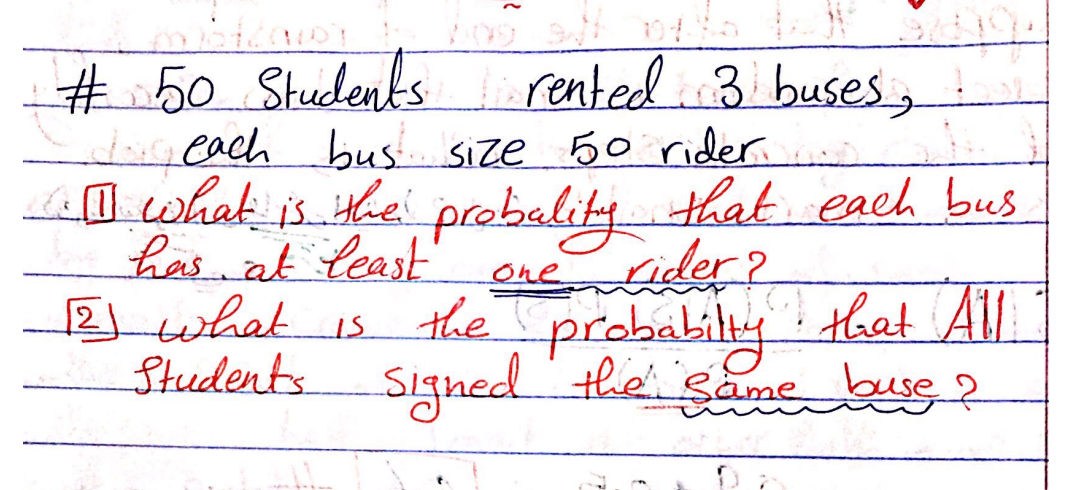 # 50 Students rented 3 buses,
each bus size 50 rider
1 what is the probality that each bus
has at least one rider?
2 what is the probabilty that All
Students signed the same buse?